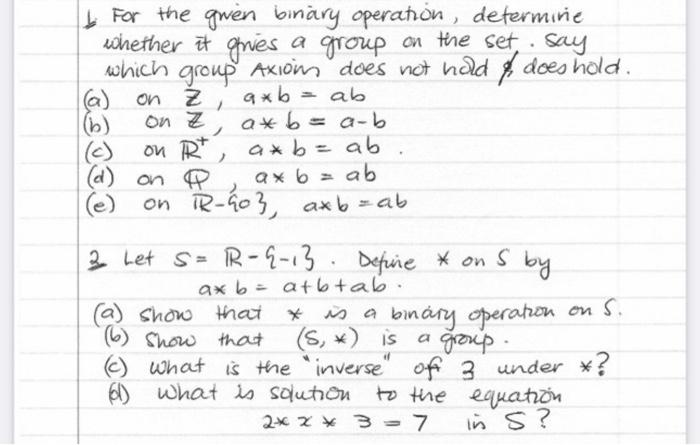 1. For the given binary operation, determine
whether it gives a group on the set. Say
which group Axiom does not hold & does hold.
(a) on ℤ, a*b = ab
(b) on ℤ, a*b = a-b
(c) on ℝ⁺, a*b = ab.
(d) on ℚ, a*b = ab
(e) on ℝ-{0}, a*b = ab
2. Let S = ℝ-{-1}. Define * on S by
a*b = a+b+ab.
(a) Show that * is a binary operation on S.
(b) Show that (S, *) is a group.
(c) What is the "inverse" of 3 under *?
(d) What is solution to the equation
2*x*3 = 7 in S?